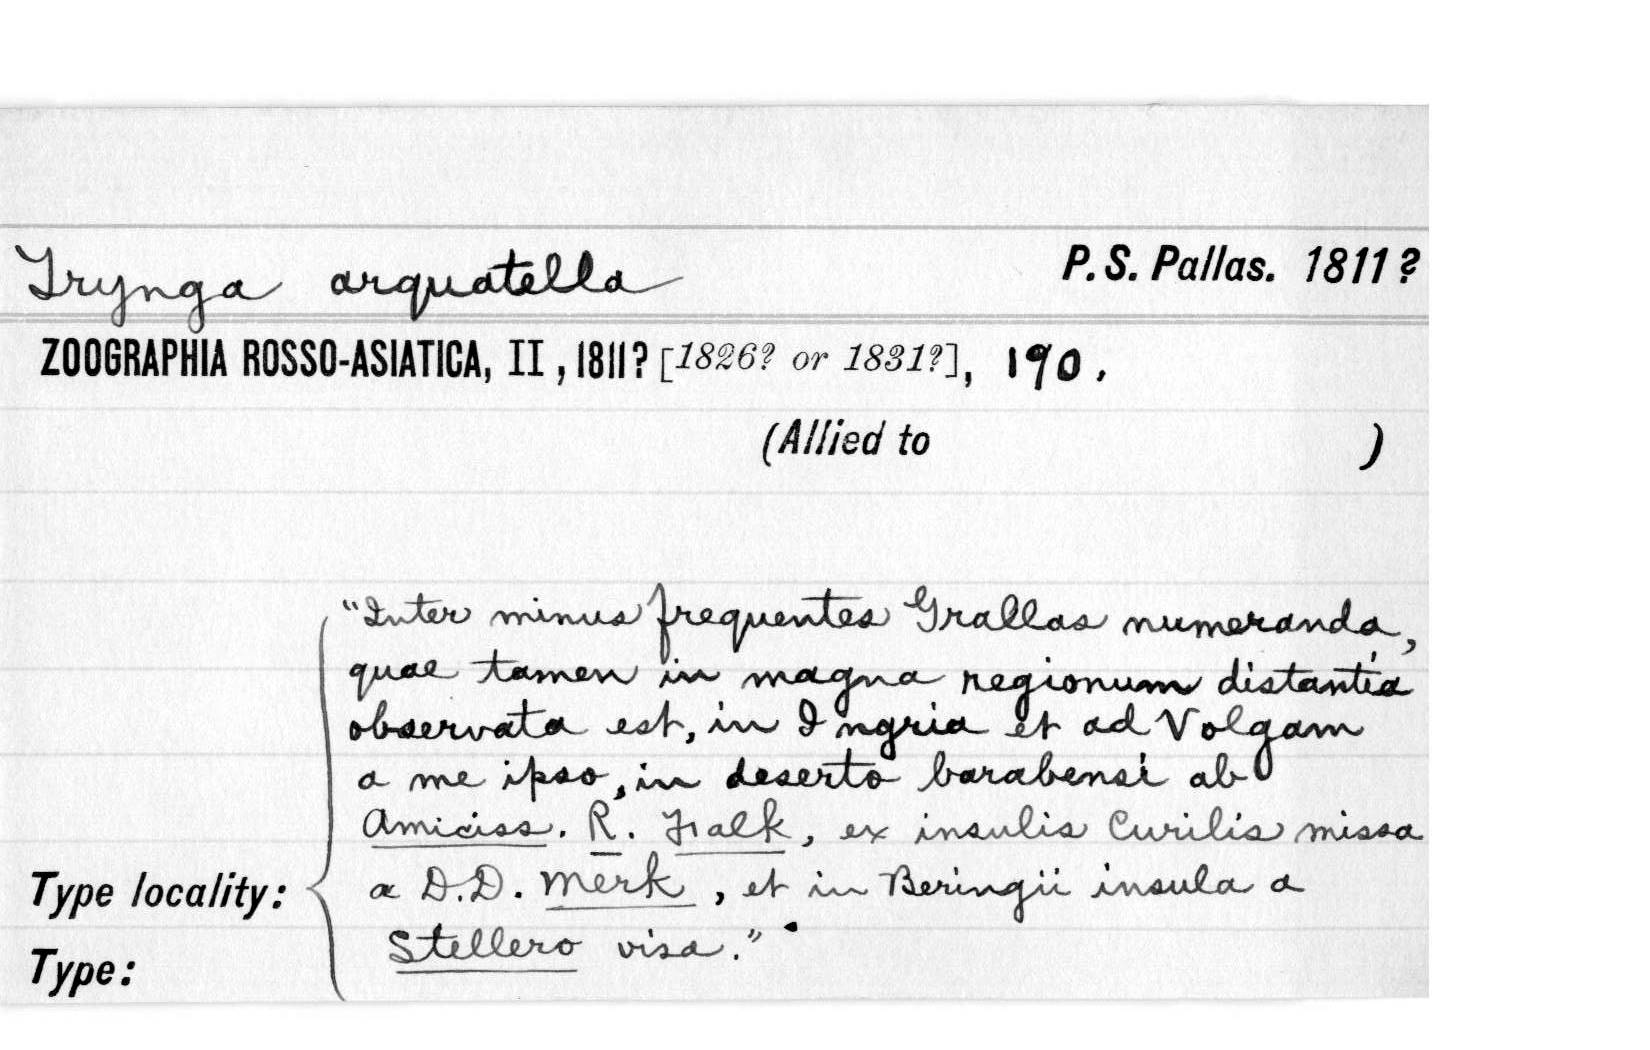 Trynga arquatella P. S. Pallas. 1811?
ZOOGRAPHIA ROSSO-ASIATICA, II, 1811? [1826? or 1831?], 190.
(Allied to )
"Inter minus frequentes Grallas numeranda,
quae tamen in magna regionum distantia
observata est, in Ingria et ad Volgam
a me ipso, in deserto barabensi ab
Amiciss. R. Falk, ex insulis Curilis missa
Type locality: a D.D. Merk, et in Beringii insula a
Stellero visa."
Type: